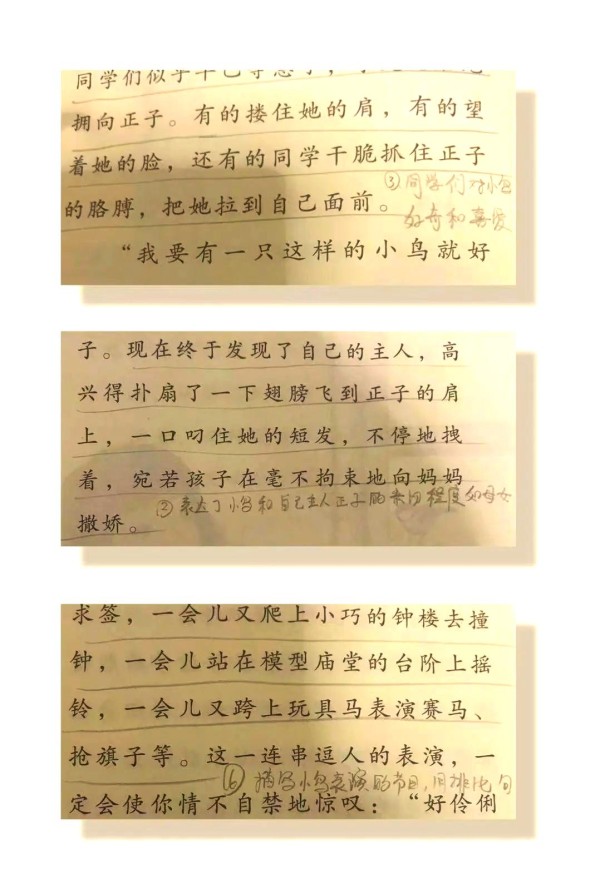 同学们似乎早已等急了，
拥向正子。有的搂住她的肩，有的望
着她的脸，还有的同学干脆抓住正子
的胳膊，把她拉到自己面前。
③同学们对小鸟
好奇和喜爱
“我要有一只这样的小鸟就好
子。现在终于发现了自己的主人，高
兴得扑扇了一下翅膀飞到正子的肩
上，一口叼住她的短发，不停地拽
着，宛若孩子在毫不拘束地向妈妈
撒娇。
②表达了小鸟和自己主人正子的亲切程度如母女
求签，一会儿又爬上小巧的钟楼去撞
钟，一会儿站在模型庙堂的台阶上摇
铃，一会儿又跨上玩具马表演赛马、
抢旗子等。这一连串逗人的表演，一
⑥描写小鸟表演的节目，用排比句
定会使你情不自禁地惊叹：“好伶俐